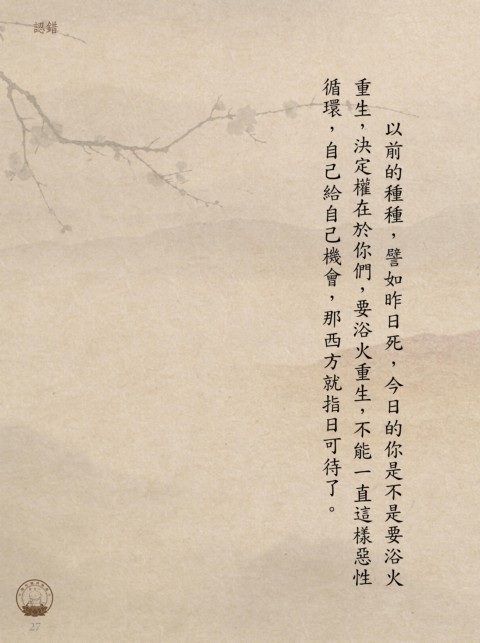 認錯
以前的種種，譬如昨日死，今日的你是不是要浴火
重生，決定權在於你們，要浴火重生，不能一直這樣惡性
循環，自己給自己機會，那西方就指日可待了。
27